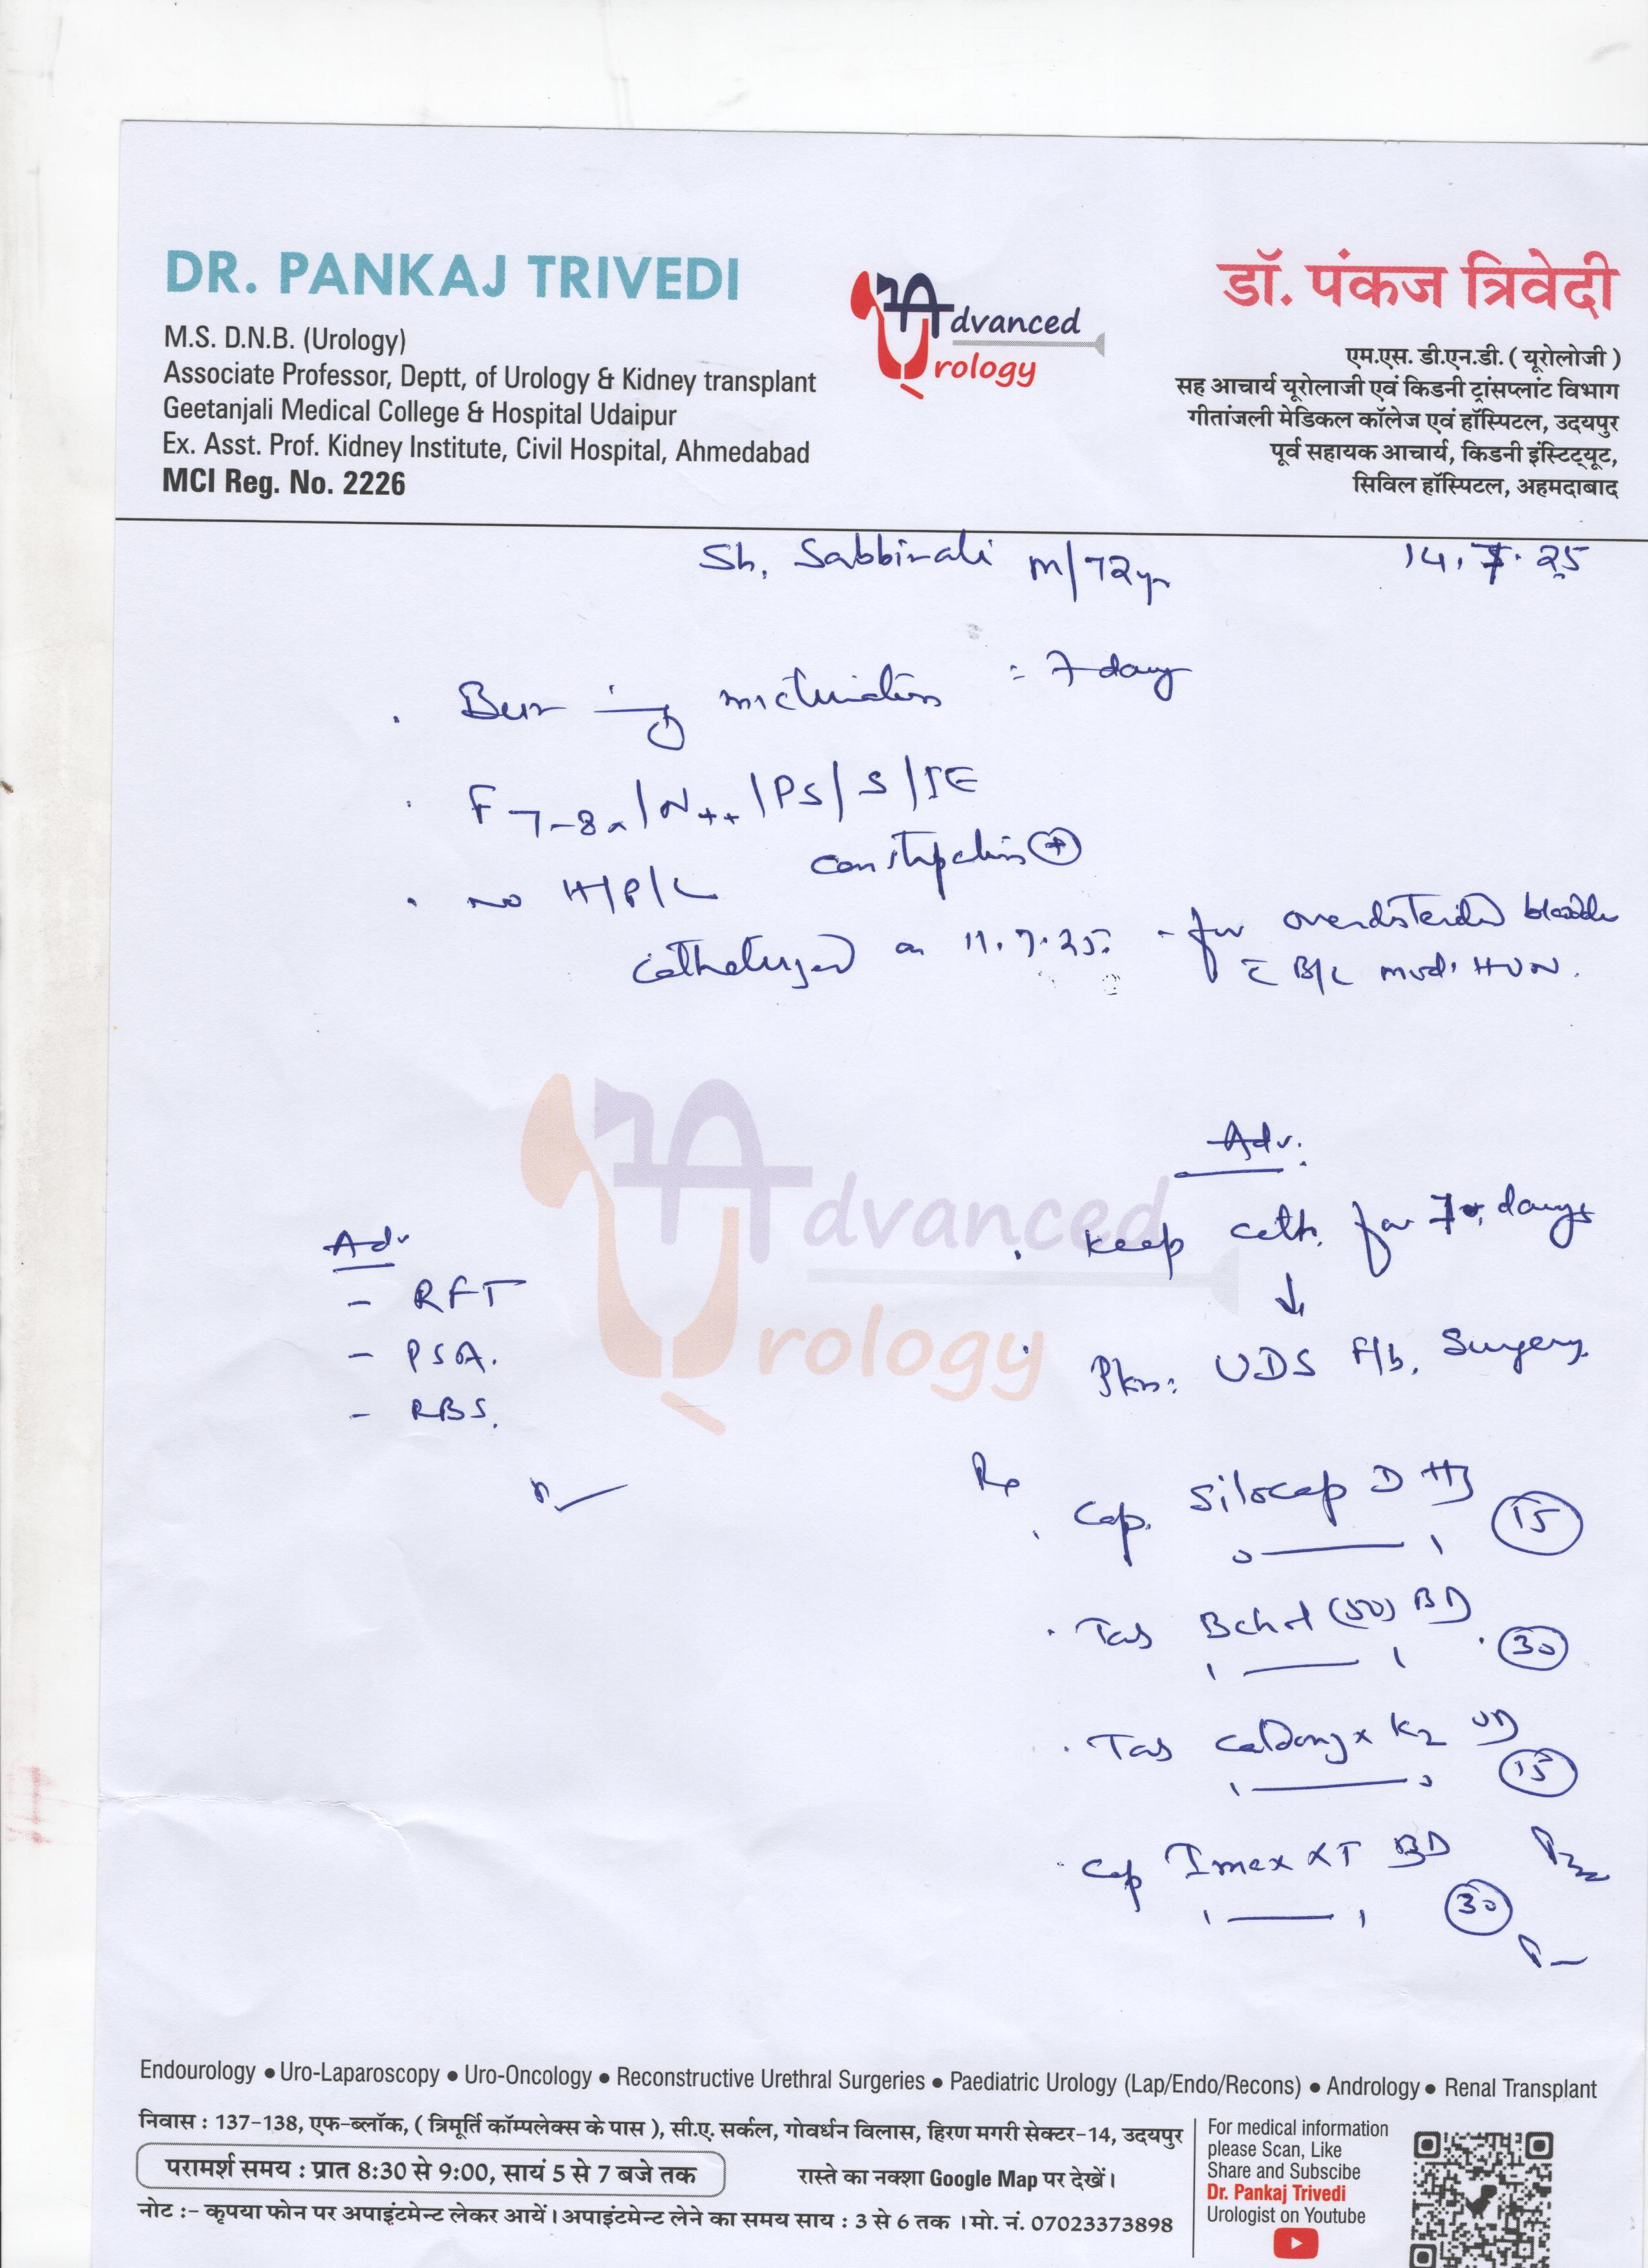 DR. PANKAJ TRIVEDI
M.S. D.N.B. (Urology)
Associate Professor, Deptt, of Urology & Kidney transplant
Geetanjali Medical College & Hospital Udaipur
Ex. Asst. Prof. Kidney Institute, Civil Hospital, Ahmedabad
MCI Reg. No. 2226
Advanced
Urology
डॉ. पंकज त्रिवेदी
एम.एस. डी.एन.डी. ( यूरोलोजी )
सह आचार्य यूरोलाजी एवं किडनी ट्रांसप्लांट विभाग
गीतांजली मेडिकल कॉलेज एवं हॉस्पिटल, उदयपुर
पूर्व सहायक आचार्य, किडनी इंस्टिट्यूट,
सिविल हॉस्पिटल, अहमदाबाद
Sh. Sabbirali m/72yr 14.7.25
Burning micturition 7 days
F 7-8 /N++ /PS/S/IE
constipation +
no H/P/L
catheterized on 11.7.25. - for overdistended bladder
c̄ B/L mod. HUN.
Advanced
Urology
Adv
- RFT
- PSA.
- RBS.
Adv.
Keep cath. for 7 days
↓
Plan: UDS f/b. Surgery
Rx
Cap. Silocap D HS 15
0 — 1
Tab (50) BD 30
1 — 1
Tab K2 OD 15
1 — 0
Cap Imax XT BD
1 — 1 30
Endourology ● Uro-Laparoscopy ● Uro-Oncology ● Reconstructive Urethral Surgeries ● Paediatric Urology (Lap/Endo/Recons) ● Andrology ● Renal Transplant
निवास : 137-138, एफ-ब्लॉक, ( त्रिमूर्ति कॉम्पलेक्स के पास ), सी.ए. सर्कल, गोवर्धन विलास, हिरण मगरी सेक्टर-14, उदयपुर
परामर्श समय : प्रात 8:30 से 9:00, सायं 5 से 7 बजे तक
रास्ते का नक्शा Google Map पर देखें।
नोट :- कृपया फोन पर अपाइंटमेन्ट लेकर आयें। अपाइंटमेन्ट लेने का समय साय : 3 से 6 तक । मो. नं. 07023373898
For medical information
please Scan, Like
Share and Subscibe
Dr. Pankaj Trivedi
Urologist on Youtube